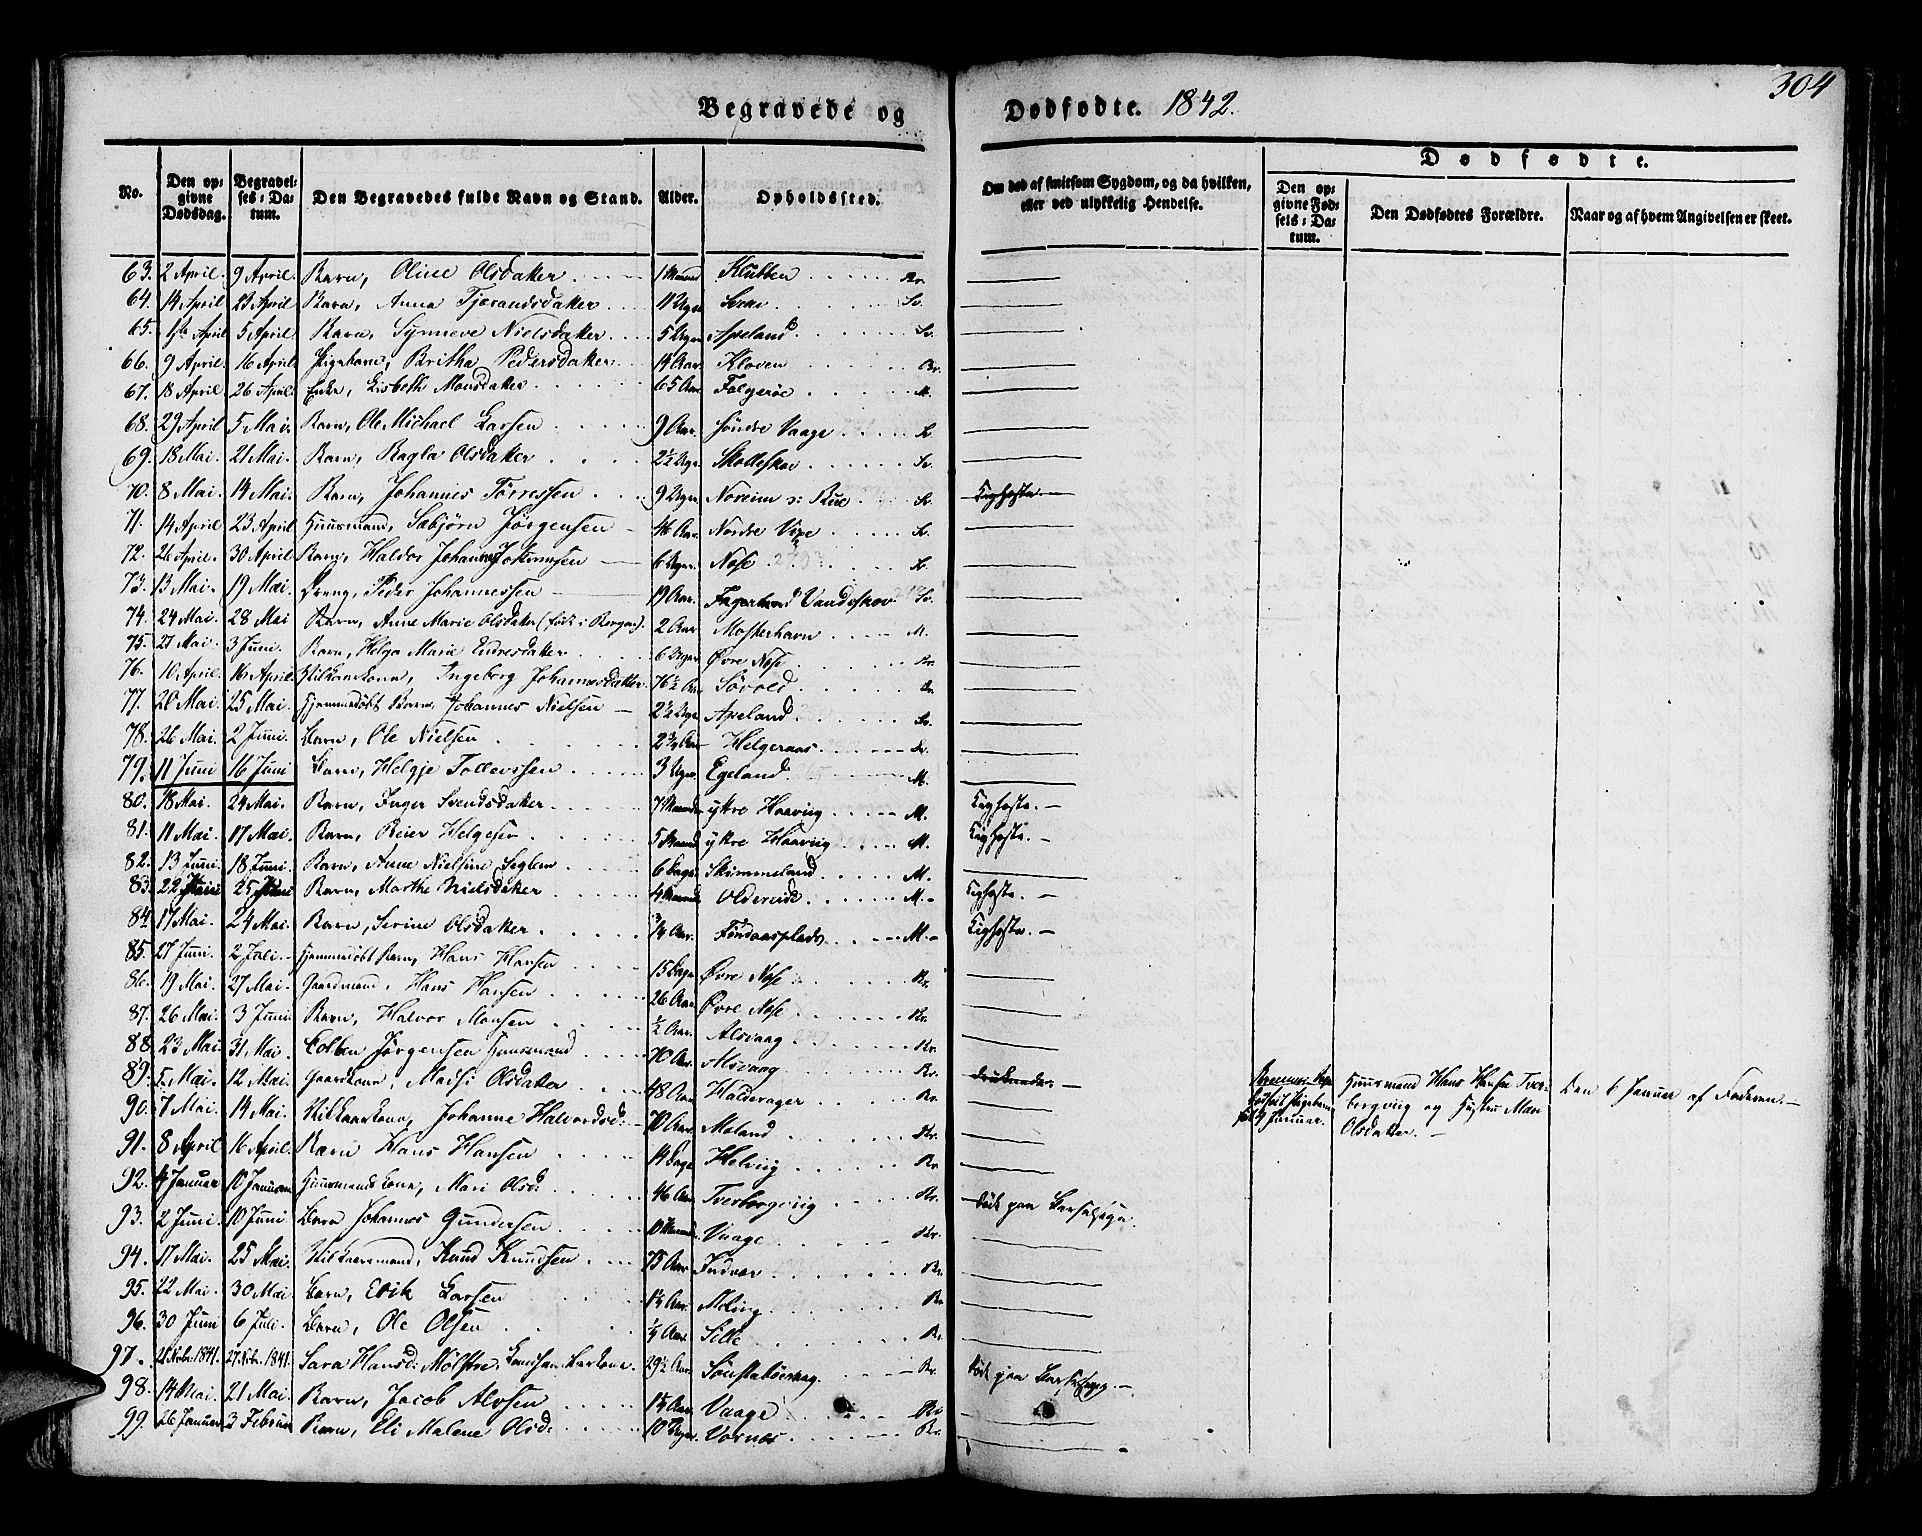 304
Begravede og Dødfødte. 1842.
No. Den opgivne Dødsdag. Begravelses-Datum. Den Begravedes fulde Navn og Stand. Alder. Opholdssted. Om død af smitsom Sygdom, og da hvilken, eller ved ulykkelig Hendelse. Dødfødte. Den opgivne Fødsels-Datum. Den Dødfødtes Forældre. Naar og af hvem Angivelsen er skeet.
63. 2 April. 9 April. Barn, Oline Olsdatter 1 Maaned Klubben Br.
64. 14 April 21 April. Barn, Anna Tjerandsdatter 11 Uger Sv.
65. April 5 April. Barn, Synneve Nielsdatter 5 Uger Apeland Sv.
66. 9 April. 16 April Pigebarn, Britha Pedersdatter 14 Aar. Kloven Br.
67. 18 April 26 April. Enke, Lisbeth Monsdatter 65 Aar Folgerøe M.
68. 29 April 5 Mai. Barn, Ole Michael Larsen 9 Aar. søndre Vaage
69. 18 Mai. 21 Mai. Barn, Ragla Olsdatter 2½ Uger. Skotteskov Sv.
70. 8 Mai. 14 Mai. Barn, Johannes Tørressen 9 Uger Noreim Kighoste.
71. 14 April 23 April Huusmand, Sæbjørn Jørgensen 46 Aar. Nordre Vige
72. 26 April. 30 April Barn, Haldor Johannessen 6 Uger. Nose
73. 13 Mai. 19 Mai. Dreng, Peder Johannessen 19 Aar. Vandeskov Sv.
74. 24 Mai. 28 Mai Barn, Anne Marie Olsdatter (født i Bergen). 2 Aar Mosterhavn M.
75. 27 Mai. 3 Juni. Barn, Helga Marie Endresdatter 6 Uger Øvre Nose Br.
76. 10 April. 16 April. Vilkaarskone, Ingeborg Johannesdatter 76½ Aar Sørvold Br.
77. 20 Mai. 25 Mai. Hjemmedøbt Barn, Johannes Nielsen 2½ Uger Apeland Sv.
78. 26 Mai. 2 Juni. Barn, Ole Nielsen 2¾ Aar Helgeraas
79. 11 Juni 16 Juni Barn, Helgje Tollevssen 3 Uger Egeland M.
80. 18 Mai. 24 Mai. Barn, Inger Svendsdatter 7 Maaneder ytre Haaviig M. Kighoste.
81. 11 Mai. 17 Mai. Barn, Reier Helgesen 5 Maaned ytre Haaviig M. Kighoste.
82. 13 Juni. 18 Juni. Barn, Anne Nielsine Seglem 6 Dage Skimmeland M.
83. 22 25 Barn, Marthe Nielsdatter 4 Maaneder Oldereide M. Kighoste.
84. 17 Mai. 24 Mai. Barn, Serine Olsdatter ¾ Aar. Føndaasplads M. Kighoste.
85. 27 Juni. 2 Juli. Hjemmedøbt Barn, Hans Hansen 15 Dage Øvre Nose Br.
86. 19 Mai. 27 Mai. Gaardmand, Hans Hansen 26 Aar Øvre Nose Br.
87. 26 Mai. 3 Juni Barn, Halvor Monsen ½ Aar. Alsvaag Br.
88. 23 Mai. 31 Mai. Colben Jørgensen Huusmand 70 Aar. Alsvaag Br.
89. 5 Mai. 12 Mai. Gaardkone, Madsi Olsdatter 48 Aar Haldorager Br. druknede.
90. 7 Mai. 14 Mai. Vilkaarskone, Johanne Halvorsd: 70 Aar. Meland Br.
91. 8 April 16 April. Barn Hans Hansen 14 Dage Helvig Br.
92. 4 Januar 10 Januar Huusmandskone, Mari Olsd: 46 Aar Tverborgviig Br. død paa Barselseng.
Januar. Huusmand Hans Hansen Tverborgviig og Hustru Mari Olsdatter. Den 6 Januar af Faderen.
93. 2 Juni. 10 Juni Barn Johannes Gundersen 10 Maaned. Vaage Br.
94. 17 Mai. 25 Mai. Vilkaarsmand, Knud Knudsen 75 Aar Indvær Br.
95. 22 Mai. 30 Mai. Barn, Erik Larsen 1½ Aar. Moling Br.
96. 30 Juni 6 Juli. Barn, Ole Olsen ¼ Aar. Sille Br.
97. 21 Nobr. 1841. 27 Nobr. 1841. Sara Hansd: Mølstre, 29½ Aar Sønstabøevaag Br. død paa Barselseng.
98. 14 Mai. 21 Mai. Barn, Jacob Alvsen 1½ Aar. Vaage Br
99. 26 Januar 3 Februar Barn, Eli Malene Olsd: 10 Uger. Vornes Br.